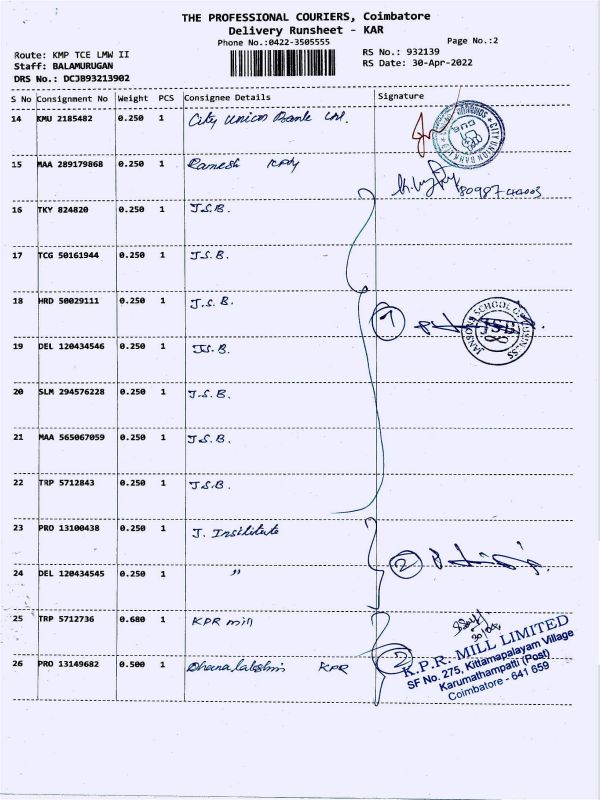 THE PROFESSIONAL COURIERS, Coimbatore
Delivery Runsheet - KAR
Phone No.:0422-3505555
Page No.:2
Route: KMP TCE LMW II
RS No.: 932139
Staff: BALAMURUGAN
RS Date: 30-Apr-2022
DRS No.: DCJB93213902
S No Consignment No Weight PCS Consignee Details Signature
14 KMU 2185482 0.250 1 City Union Bank Ltd.
CITY UNION BANK
CUB
15 MAA 289179868 0.250 1 Ramesh KPM
16 TKY 824820 0.250 1 J.S.B.
17 TCG 50161944 0.250 1 J.S.B.
18 HRD 50029111 0.250 1 J.S.B.
JANSONS SCHOOL OF BUSINESS
JSB
19 DEL 120434546 0.250 1 J.S.B.
20 SLM 294576228 0.250 1 J.S.B.
21 MAA 565067059 0.250 1 J.S.B.
22 TRP 5712843 0.250 1 J.S.B.
23 PRO 13100438 0.250 1 J. Institute
2
24 DEL 120434545 0.250 1 "
25 TRP 5712736 0.680 1 KPR mill
26 PRO 13149682 0.500 1 Dhanalakshmi KPR
2
K.P.R. MILL LIMITED
SF No. 275, Kittampalayam Village
Karumathampatti (Post)
Coimbatore - 641 659